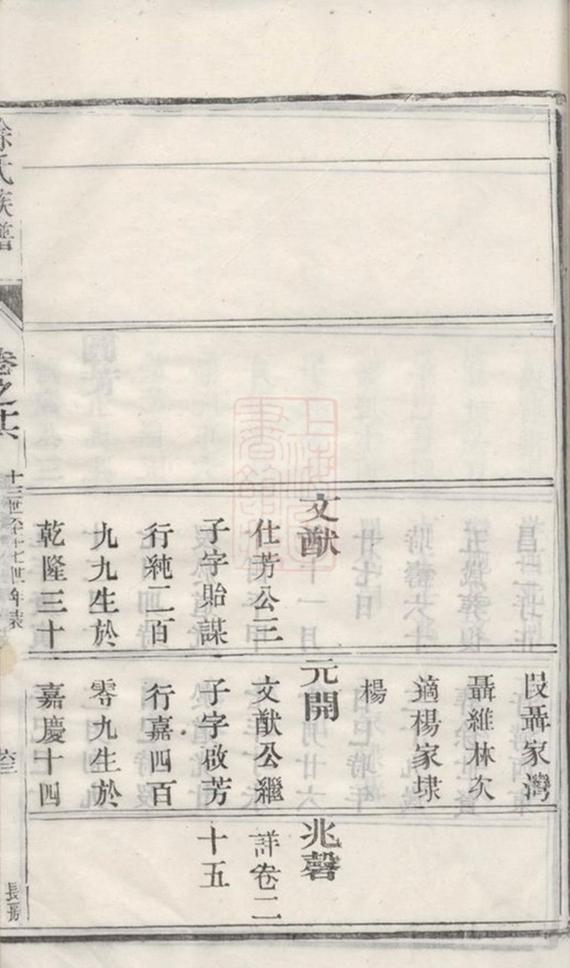 文猷
仕芳公三
子字貽謀
行純二百
九九生於
乾隆三十
段聶家灣
聶維林次
適楊家埭
楊
元開
文猷公繼
子字啟芳
行嘉四百
零九生於
嘉慶十四
兆馨
詳卷二
十五
徐氏族譜
卷之
十三世至十七世年表
長房